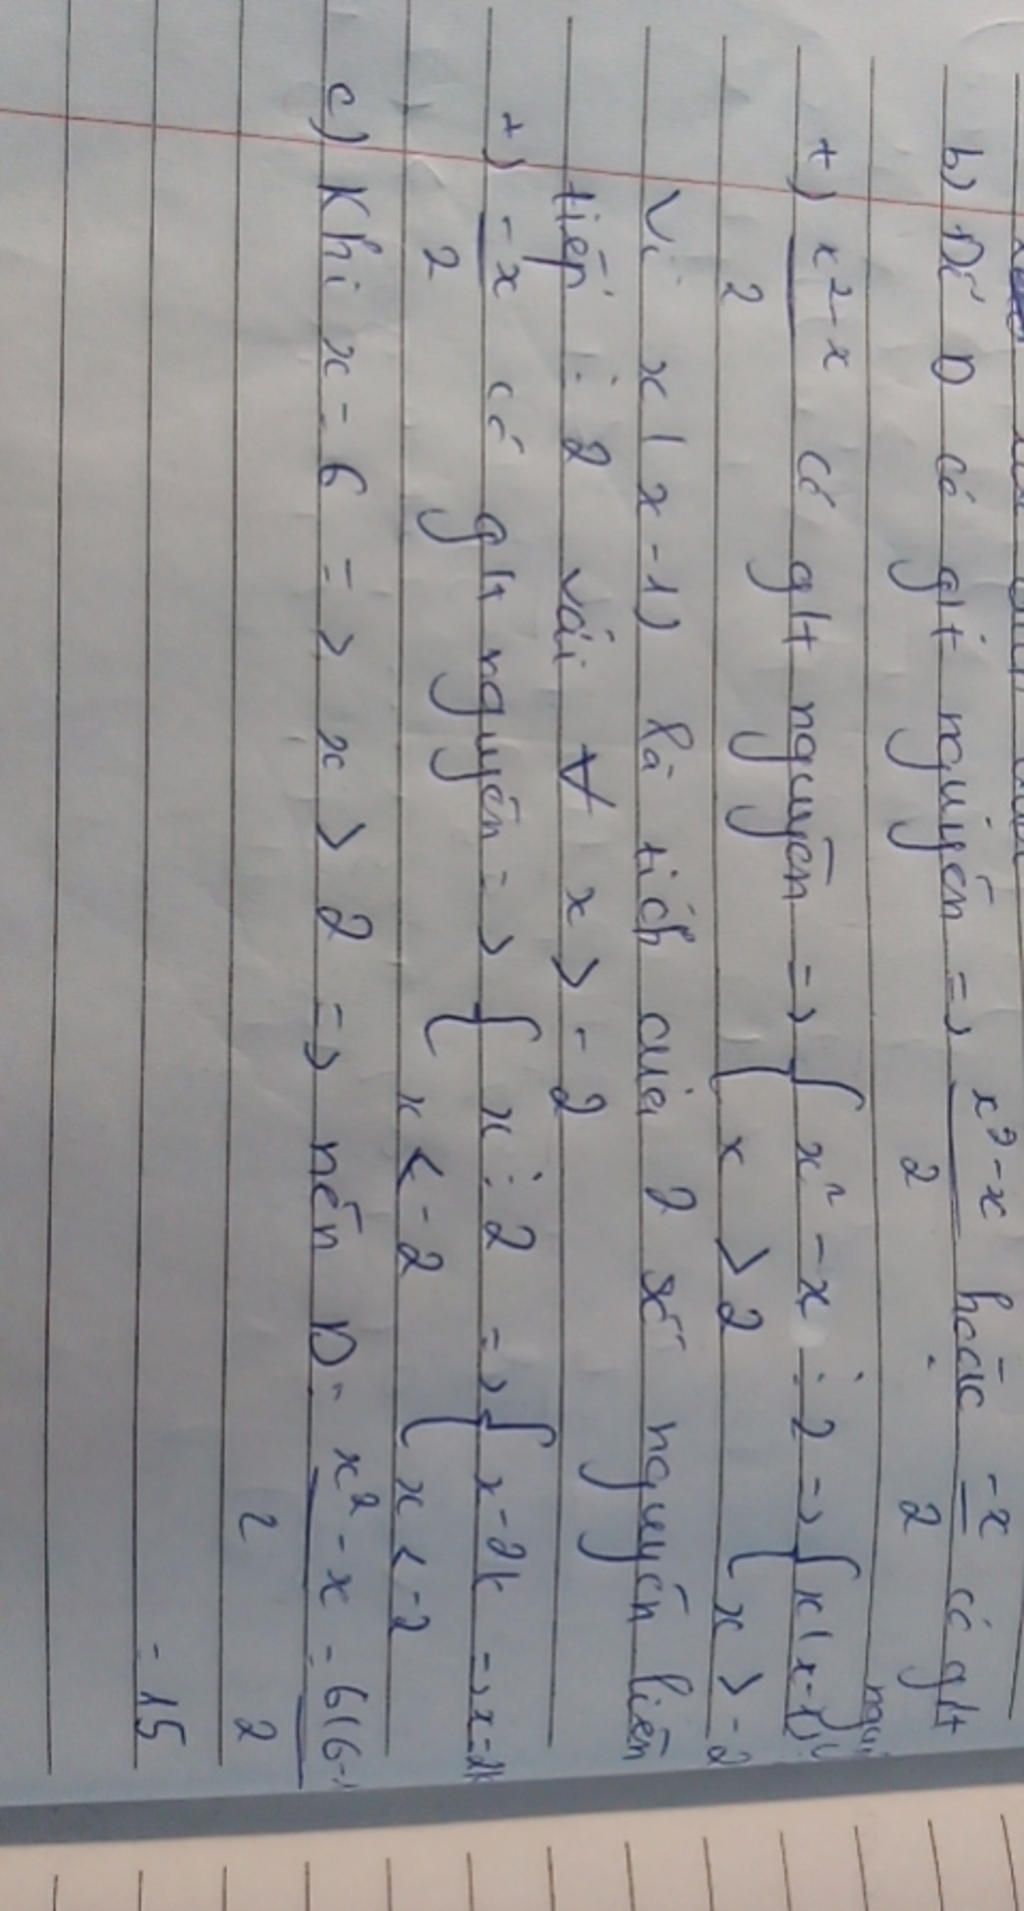 b) Để D có gtt nguyên => x² - x / 2 hoặc -x / 2 có gtt
nguy
+) x² - x / 2 có gtt nguyên => { x² - x ⋮ 2 ; x > 2 => { x(x-1) ⋮ ; x > -2
Vì x(x-1) là tích của 2 số nguyên liên
tiếp ⋮ 2 với ∀ x > -2
+) -x / 2 có gtt nguyên => { x ⋮ 2 ; x < -2 => { x = 2k ; x < -2 => x = 2k
c) Khi x = 6 => x > 2 => nên D = x² - x / 2 = 6(6-1 / 2
= 15